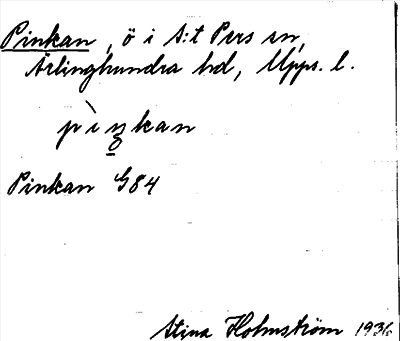 Pinkan, ö i S:t Pers sn,
Ärlinghundra hd, Upps. l.
pìŋkan
Pinkan G84
Stina Holmström 1936